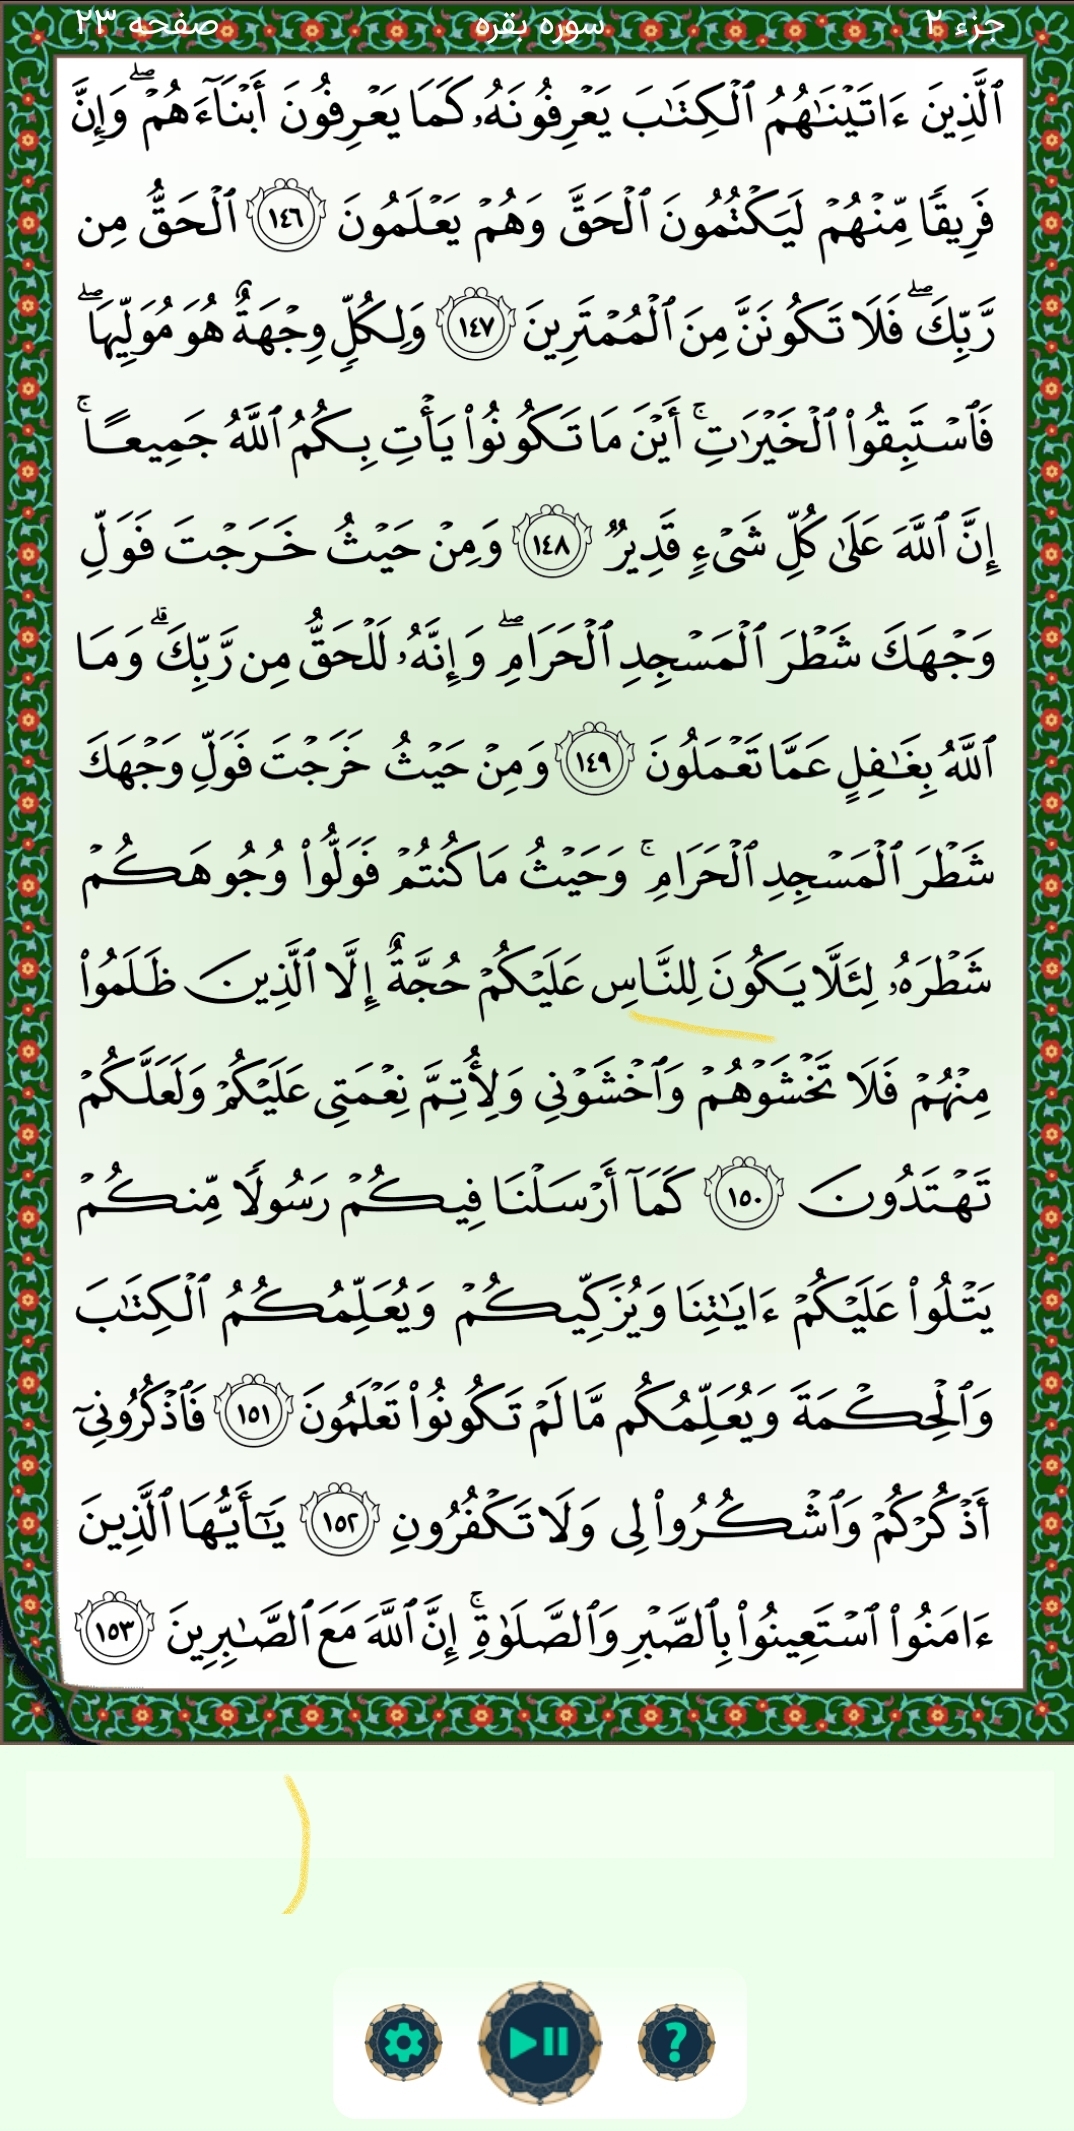 جزء ۲ سوره بقره صفحه ۲۳
ٱلَّذِينَ ءَاتَيۡنَٰهُمُ ٱلۡكِتَٰبَ يَعۡرِفُونَهُۥ كَمَا يَعۡرِفُونَ أَبۡنَآءَهُمۡۖ وَإِنَّ
فَرِيقٗا مِّنۡهُمۡ لَيَكۡتُمُونَ ٱلۡحَقَّ وَهُمۡ يَعۡلَمُونَ ١٤٦ ٱلۡحَقُّ مِن
رَّبِّكَۖ فَلَا تَكُونَنَّ مِنَ ٱلۡمُمۡتَرِينَ ١٤٧ وَلِكُلّٖ وِجۡهَةٌ هُوَ مُوَلِّيهَاۖ
فَٱسۡتَبِقُواْ ٱلۡخَيۡرَٰتِۚ أَيۡنَ مَا تَكُونُواْ يَأۡتِ بِكُمُ ٱللَّهُ جَمِيعًاۚ
إِنَّ ٱللَّهَ عَلَىٰ كُلِّ شَيۡءٖ قَدِيرٞ ١٤٨ وَمِنۡ حَيۡثُ خَرَجۡتَ فَوَلِّ
وَجۡهَكَ شَطۡرَ ٱلۡمَسۡجِدِ ٱلۡحَرَامِۖ وَإِنَّهُۥ لَلۡحَقُّ مِن رَّبِّكَۗ وَمَا
ٱللَّهُ بِغَٰفِلٍ عَمَّا تَعۡمَلُونَ ١٤٩ وَمِنۡ حَيۡثُ خَرَجۡتَ فَوَلِّ وَجۡهَكَ
شَطۡرَ ٱلۡمَسۡجِدِ ٱلۡحَرَامِۚ وَحَيۡثُ مَا كُنتُمۡ فَوَلُّواْ وُجُوهَكُمۡ
شَطۡرَهُۥ لِئَلَّا يَكُونَ لِلنَّاسِ عَلَيۡكُمۡ حُجَّةٌ إِلَّا ٱلَّذِينَ ظَلَمُواْ
مِنۡهُمۡ فَلَا تَخۡشَوۡهُمۡ وَٱخۡشَوۡنِي وَلِأُتِمَّ نِعۡمَتِي عَلَيۡكُمۡ وَلَعَلَّكُمۡ
تَهۡتَدُونَ ١٥٠ كَمَآ أَرۡسَلۡنَا فِيكُمۡ رَسُولٗا مِّنكُمۡ
يَتۡلُواْ عَلَيۡكُمۡ ءَايَٰتِنَا وَيُزَكِّيكُمۡ وَيُعَلِّمُكُمُ ٱلۡكِتَٰبَ
وَٱلۡحِكۡمَةَ وَيُعَلِّمُكُم مَّا لَمۡ تَكُونُواْ تَعۡلَمُونَ ١٥١ فَٱذۡكُرُونِيٓ
أَذۡكُرۡكُمۡ وَٱشۡكُرُواْ لِي وَلَا تَكۡفُرُونِ ١٥٢ يَٰٓأَيُّهَا ٱلَّذِينَ
ءَامَنُواْ ٱسۡتَعِينُواْ بِٱلصَّبۡرِ وَٱلصَّلَوٰةِۚ إِنَّ ٱللَّهَ مَعَ ٱلصَّٰبِرِينَ ١٥٣